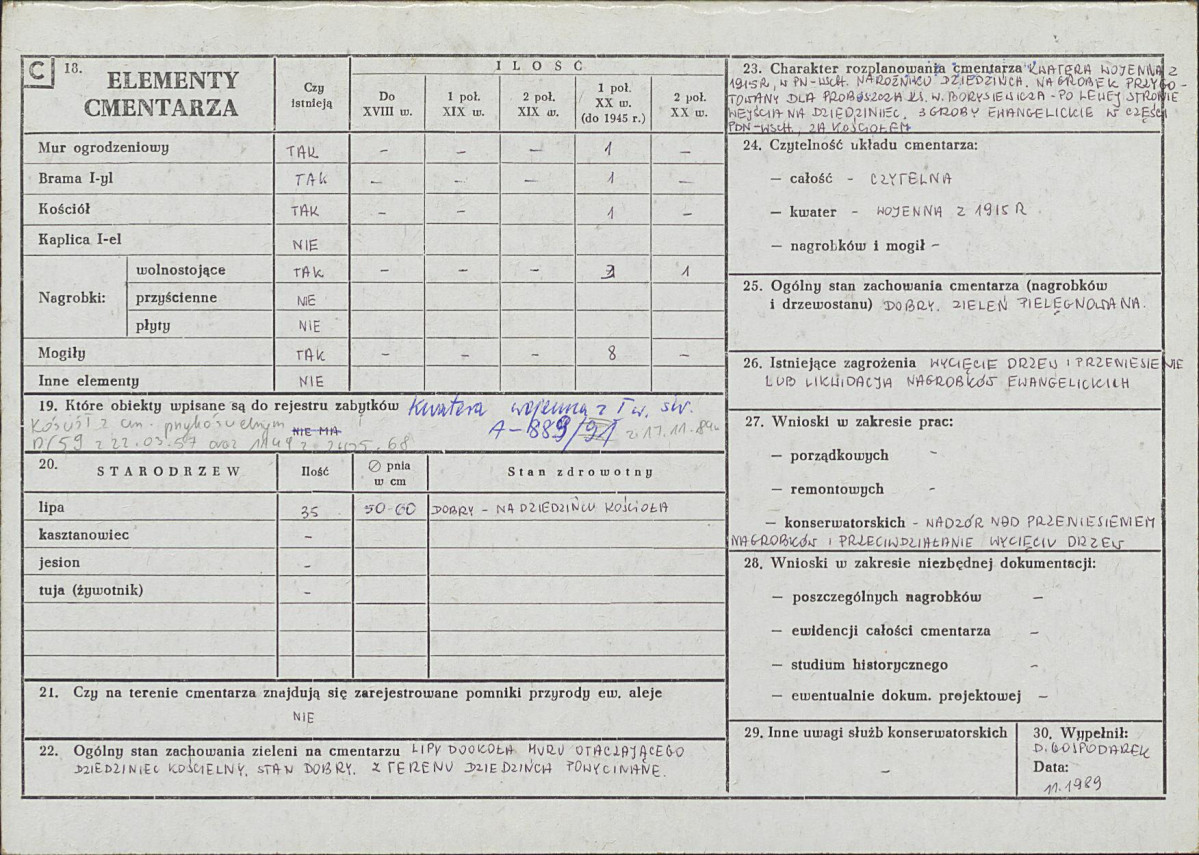 C 18. ELEMENTY CMENTARZA
Czy istnieją
ILOŚĆ
Do XVIII w.
1 poł. XIX w.
2 poł. XIX w.
1 poł. XX w. (do 1945 r.)
2 poł. XX w.
Mur ogrodzeniowy TAK – – – 1 –
Brama I-yl TAK – – – 1 –
Kościół TAK – – 1 –
Kaplica I-el NIE
Nagrobki:
wolnostojące TAK – – – 3 1
przyścienne NIE
płyty NIE
Mogiły TAK – – – 8 –
Inne elementy NIE
19. Które obiekty wpisane są do rejestru zabytków Kwatera wojenna z I w. św.
Kościół z cm. przykościelnym NIE MA A-889/ z 17.11.89
D/59 z 22.03.57 oraz
20. STARODRZEW
Ilość
∅ pnia w cm
Stan zdrowotny
lipa 35 50-60 DOBRY – NA DZIEDZIŃCU KOŚCIOŁA
kasztanowiec –
jesion –
tuja (żywotnik) –
21. Czy na terenie cmentarza znajdują się zarejestrowane pomniki przyrody ew. aleje
NIE
22. Ogólny stan zachowania zieleni na cmentarzu LIPY DOOKOŁA MURU OTACZAJĄCEGO
DZIEDZINIEC KOŚCIELNY. STAN DOBRY. Z TERENU DZIEDZIŃCA POWYCINANE.
23. Charakter rozplanowania cmentarza KWATERA WOJENNA Z
1915 R, W PN-WSCH. NAROŻNIKU DZIEDZIŃCA. NAGROBEK PRZYGO-
TOWANY DLA PROBOSZCZA KS. W. BORYSIEWICZA - PO LEWEJ STRONIE
WEJŚCIA NA DZIEDZINIEC. 3 GROBY EWANGELICKIE W CZĘŚCI
PDN-WSCH. ZA KOŚCIOŁEM
24. Czytelność układu cmentarza:
— całość - CZYTELNA
— kwater - WOJENNA Z 1915 R
— nagrobków i mogił -
25. Ogólny stan zachowania cmentarza (nagrobków
i drzewostanu) DOBRY. ZIELEŃ PIELĘGNOWANA.
26. Istniejące zagrożenia WYCIĘCIE DRZEW I PRZENIESIENIE
LUB LIKWIDACJA NAGROBKÓW EWANGELICKICH
27. Wnioski w zakresie prac:
— porządkowych -
— remontowych -
— konserwatorskich - NADZÓR NAD PRZENIESIENIEM
NAGROBKÓW I PRZECIWDZIAŁANIE WYCIĘCIU DRZEW
28. Wnioski w zakresie niezbędnej dokumentacji:
— poszczególnych nagrobków –
— ewidencji całości cmentarza –
— studium historycznego -
— ewentualnie dokum. projektowej –
29. Inne uwagi służb konserwatorskich
–
30. Wypełnił:
D. GOSPODAREK
Data:
11.1989